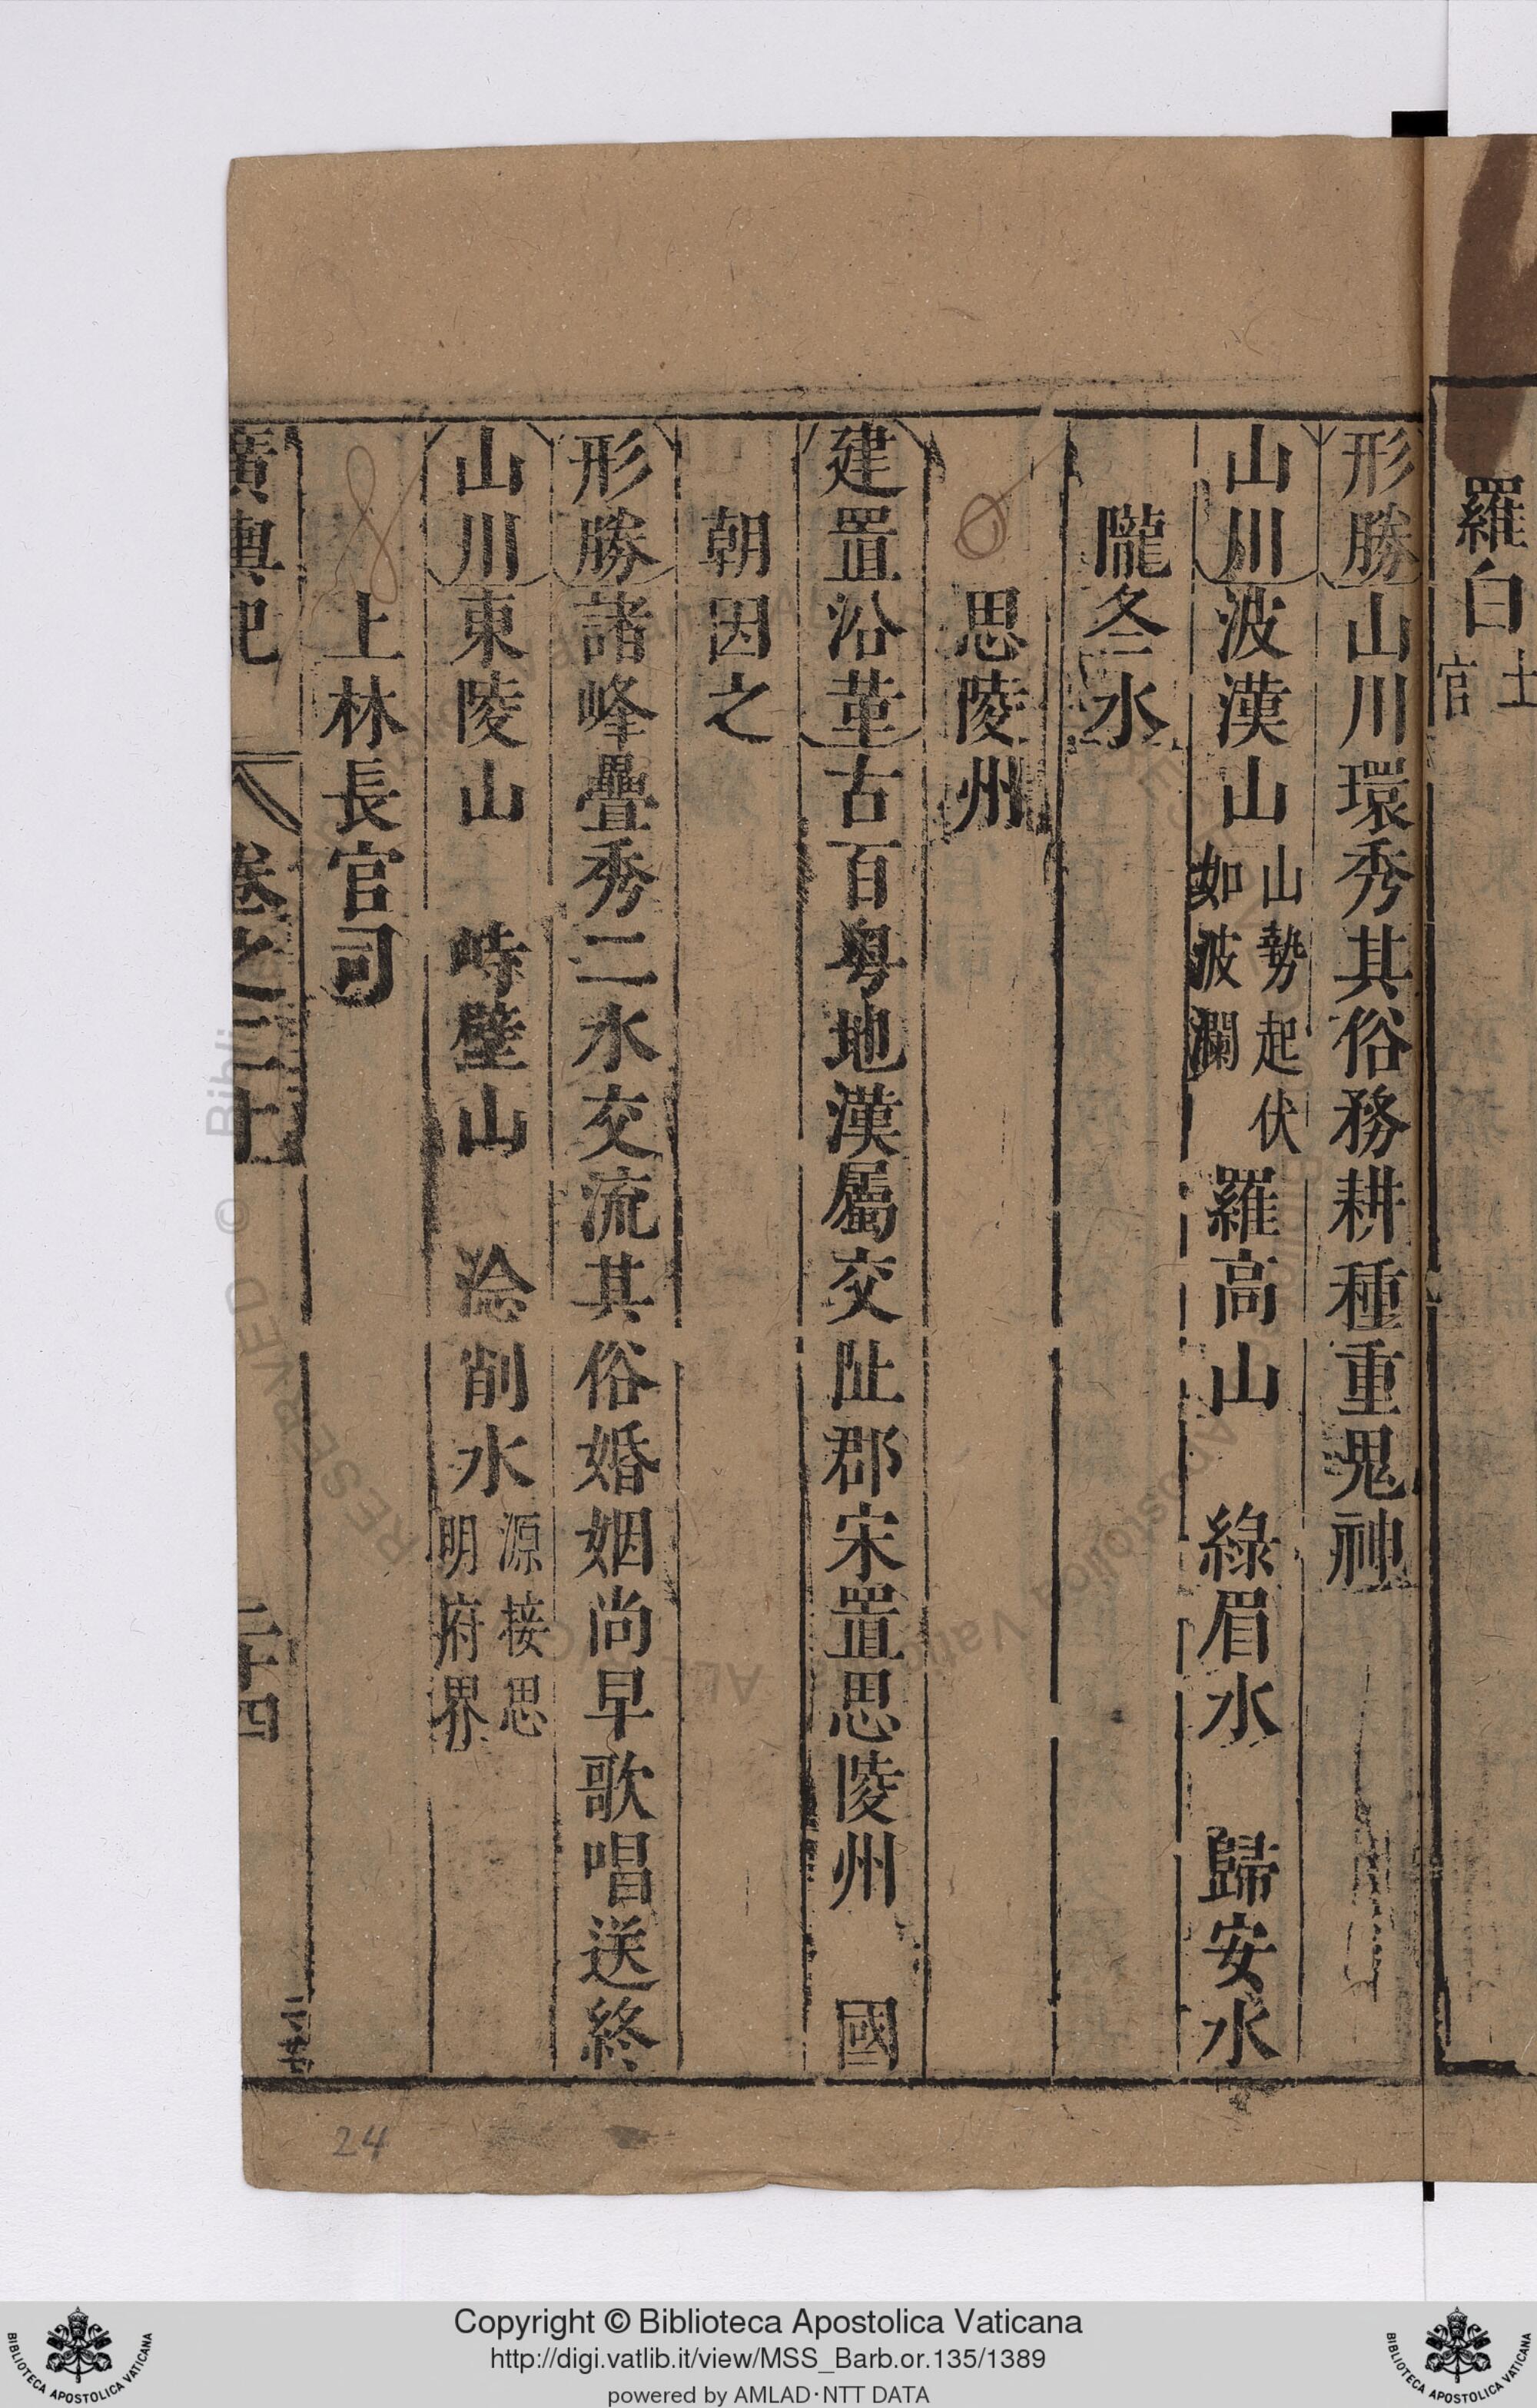 羅白土官
形勝山川環秀其俗務耕種重鬼神
山川波漢山山勢起伏如波瀾 羅高山 綠眉水 歸安水
隴冬水
思陵州
建置沿革古百粤地漢屬交阯郡宋置思陵州 國
朝因之
形勝諸峰疊秀二水交流其俗婚姻尚早歌唱送終
山川東陵山 峙壁山 淰削水源接思明府界
上林長官司
廣輿記 卷之二十 二十四
24
Copyright © Biblioteca Apostolica Vaticana
http://digi.vatlib.it/view/MSS_Barb.or.135/1389
powered by AMLAD·NTT DATA
BIBLIOTECA APOSTOLICA VATICANA
BIBLIOTECA APOSTOLICA VATICANA